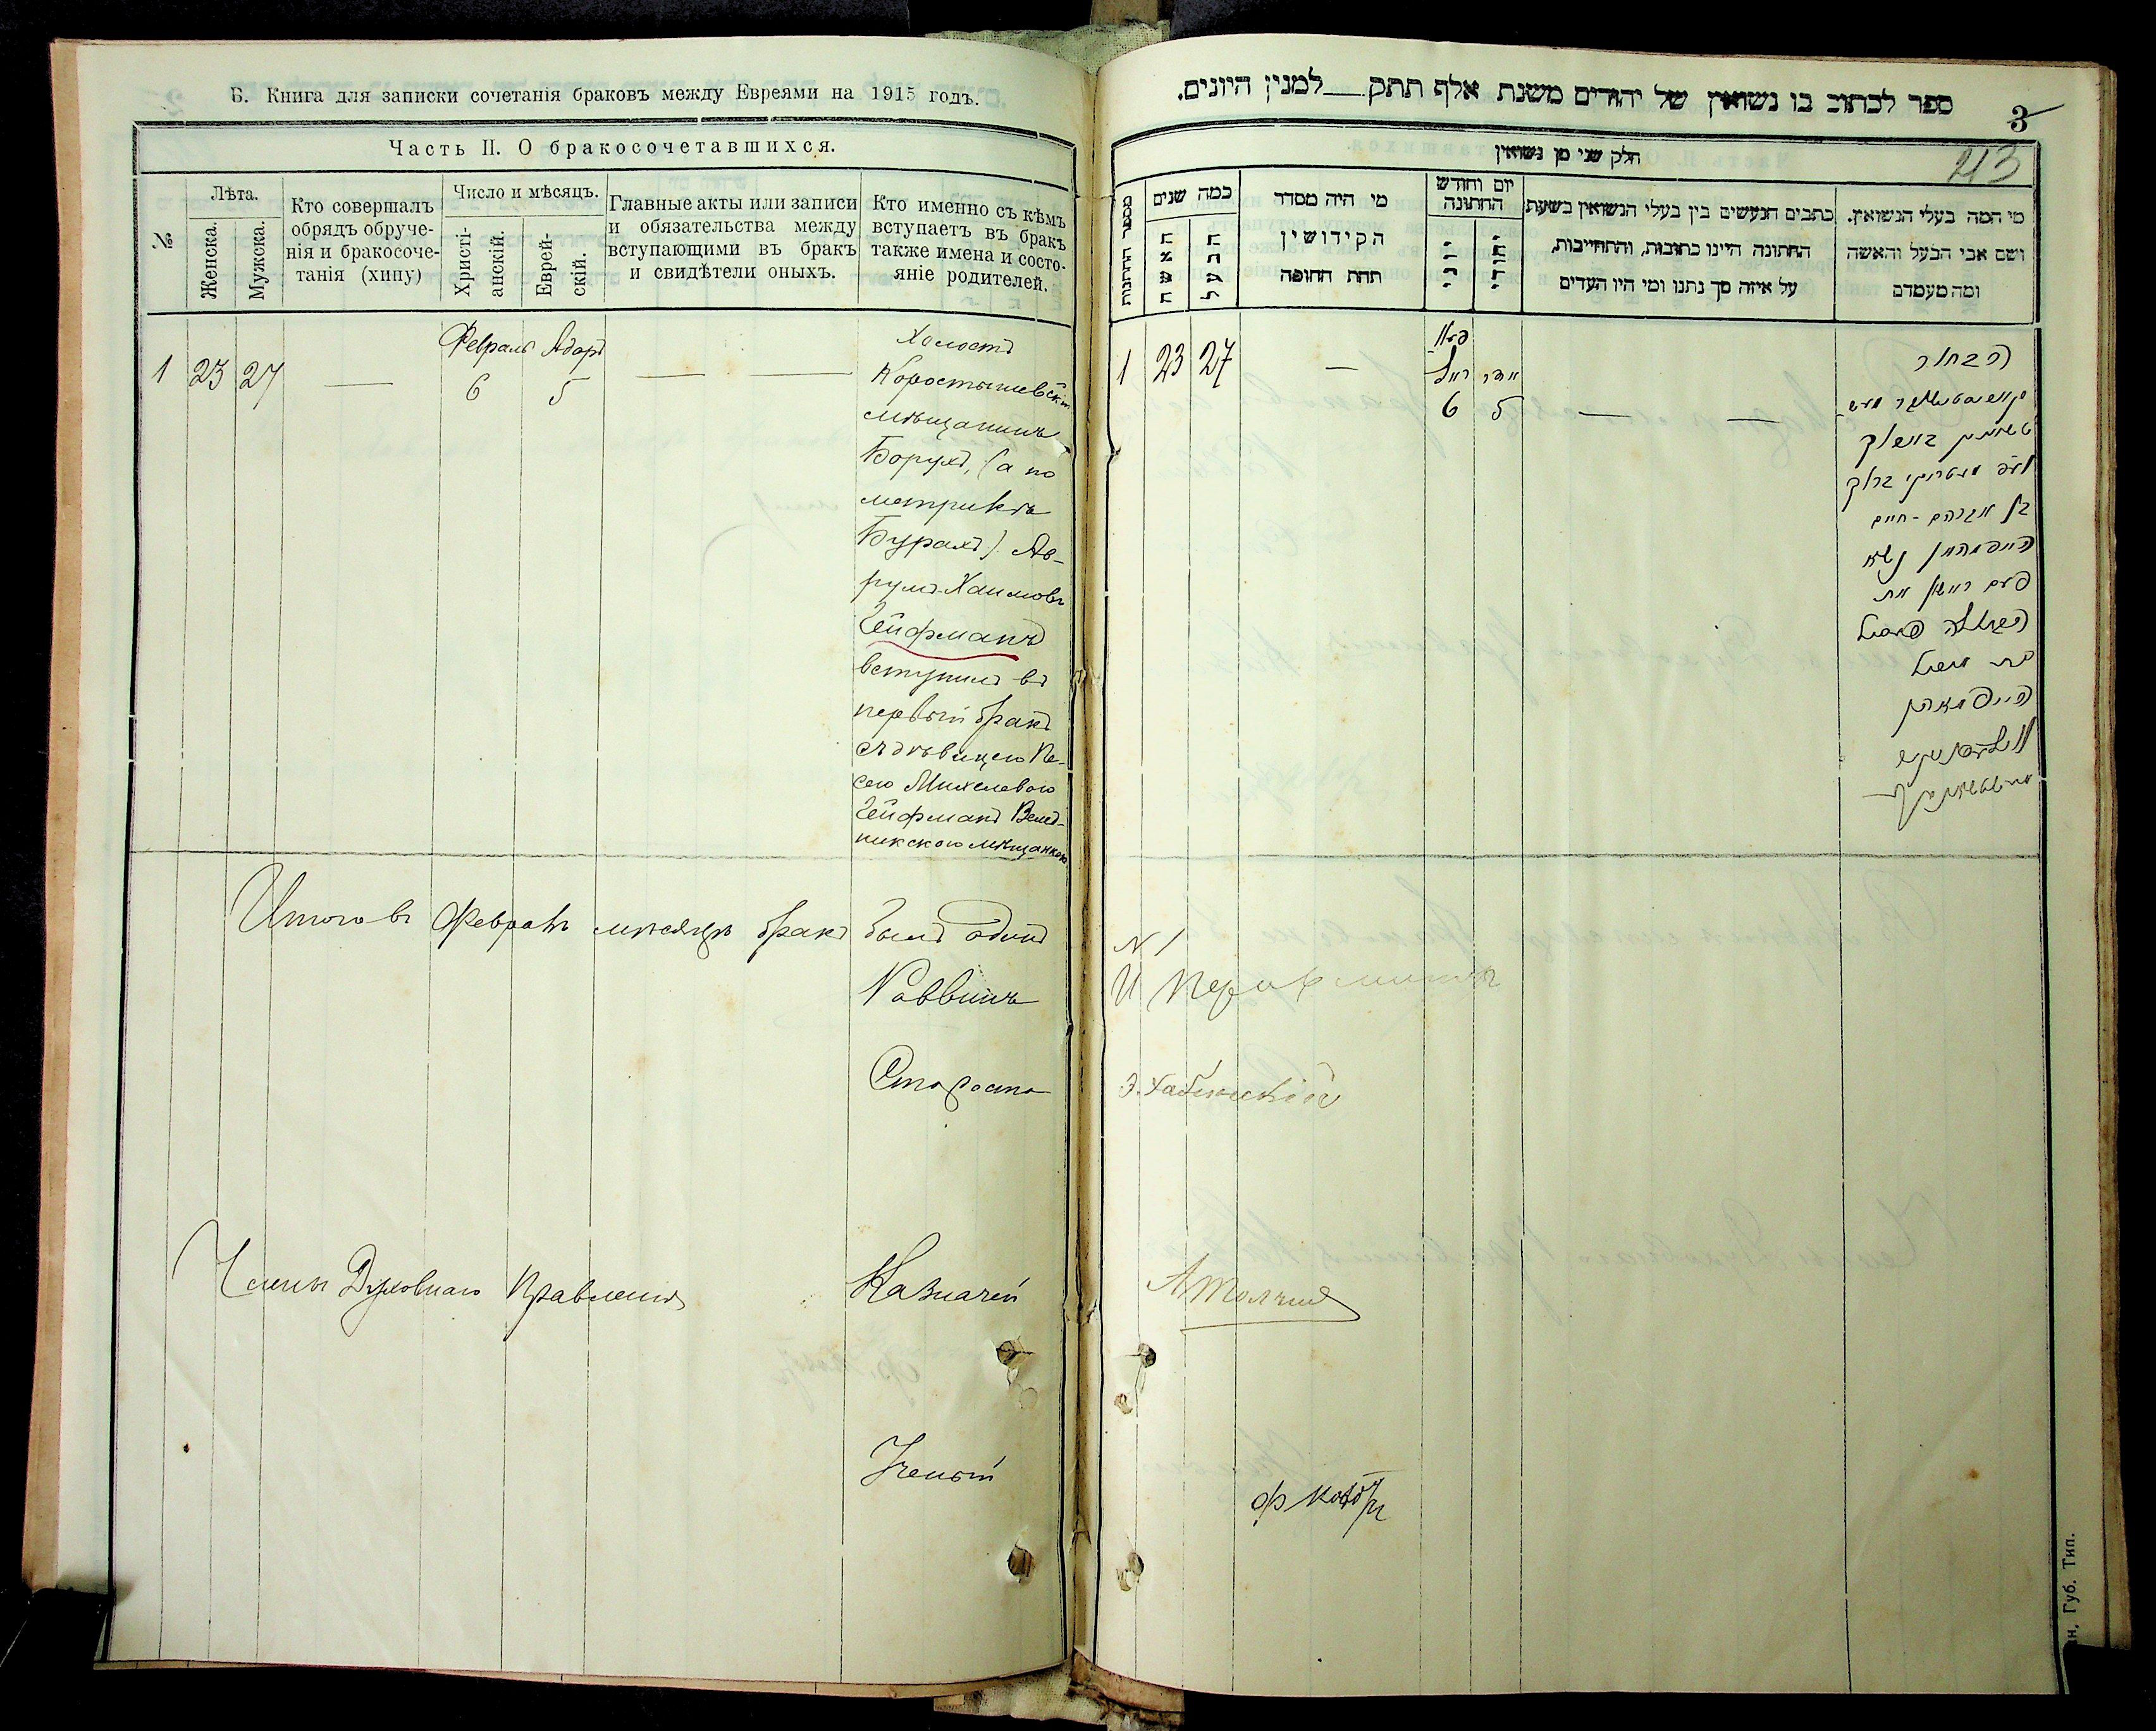 Б. Книга для записки сочетанія браковъ между Евреями на 1915 годъ.
Часть II. О бракосочетавшихся.
№
Лѣта.
Женска.
Мужска.
Кто совершалъ
обрядъ обруче-
нія и бракосоче-
танія (хипу)
Число и мѣсяцъ.
Христі-
анскій.
Еврей-
скій.
Главные акты или записи
и обязательства между
вступающими въ бракъ
и свидѣтели оныхъ.
Кто именно съ кѣмъ
вступаетъ въ бракъ
также имена и состо-
яніе родителей.
Февраль Адаръ
1 23 27 — 6 5 — —
Холостъ
Коростышевскій
мѣщанинъ
Борухъ, (а по
метрикѣ
Бурахъ) Ав-
румъ-Хаимовъ
Гейфманъ
вступилъ въ
первый бракъ
съ дѣвицею Пе-
сею Михелевою
Гейфманъ Велед-
никскою мѣщанкою
Итого въ Февралѣ мѣсяцѣ бракъ былъ одинъ
Раввинъ
Староста
Члены Духовнаго Правленія Казначей
Ученый
ספר לכתוב בו נשואין של יהודים משנת אלף תתק למנין היונים.
3
213
חלק שני מן נשואין
מספר החתונות
כמה שנים
האשה
הבעל
מי היה מסדר
הקידושין
תחת החופה
יום וחודש
החתונה
יוני
יהודי
כתבים הנעשים בין בעלי הנשואין בשעת
החתונה היינו כתובות, והתחייבות,
על איזה סך נתנו ומי היו העדים
מי המה בעלי הנשואין.
ושם אבי הבעל והאשה
ומה מעמדם
1 23 27 — 6 5 — —
הבחור
ברוך
בן אברהם - חיים
הייפמאן נשא
פעם ראשון את
הבתולה פעסיל
בת מיכל
הייפמאן
N 1
Э. Хабинскій
А Толчин
н, Губ. Тип.